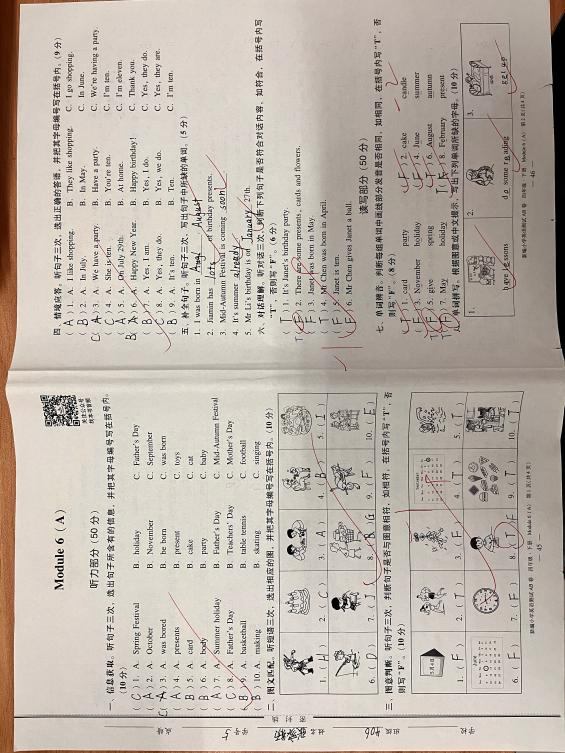 Module 6 (A)
听力部分 (50 分)
一、信息获取。听句子三次，选出句子所含有的信息，并把其字母编号写在括号内。
(10 分)
( C ) 1. A. Spring Festival B. holiday C. Father's Day
( A ) 2. A. October B. November C. September
( A ) 3. A. was bored B. be born C. was born
( A ) 4. A. presents B. present C. toys
( B ) 5. A. card B. cake C. cat
( B ) 6. A. body B. party C. baby
( A ) 7. A. Summer holiday B. Father's Day C. Mid-Autumn Festival
( C ) 8. A. Father's Day B. Teachers' Day C. Mother's Day
( B ) 9. A. basketball B. table tennis C. football
( B ) 10. A. making B. skating C. singing
二、图文匹配。听短语三次，选出相应的图，并把其字母编号写在括号内。(10 分)
1. ( H ) 2. ( C ) 3. ( A ) 4. ( B ) 5. ( I )
6. ( D ) 7. ( J ) 8. ( G ) 9. ( F ) 10. ( E )
三、图意判断。听句子三次，判断句子是否与图意相符，如相符，在括号内写“T”，否
则写“F”。(10 分)
1. ( F ) 2. ( T ) 3. ( F ) 4. ( T ) 5. ( T )
6. ( F ) 7. ( F ) 8. ( T ) F 9. ( T ) 10. ( T )
— 45 —
四、情境应答。听句子三次，选出正确的答语，并把其字母编号写在括号内。(9 分)
( A ) 1. A. I like shopping. B. They like shopping. C. I go shopping.
( B ) 2. A. In July. B. In May. C. In June.
( A ) 3. A. We have a party. B. Have a party. C. We're having a party.
( A ) 4. A. She is ten. B. You're ten. C. I'm ten.
( A ) 5. A. On July 29th. B. At home. C. I'm eleven.
( A ) 6. A. Happy New Year. B. Happy birthday! C. Thank you.
( B ) 7. A. Yes, I am. B. Yes, I do. C. Yes, they do.
( C ) 8. A. Yes, they do. B. Yes, we do. C. Yes, they are.
( B ) 9. A. It's ten. B. Ten. C. I'm ten.
五、补全句子。听句子三次，写出句子中所缺的单词。(5 分)
1. I was born in August
2. Jiamin has lots of birthday presents.
3. Mid-Autumn Festival is coming soon!
4. It's summer already
5. Mr Li's birthday is on January 27th.
六、对话理解。听对话三次，判断下列句子是否符合对话内容，如符合，在括号内写
“T”，否则写“F”。(6 分)
( T ) 1. It's Janet's birthday party.
( F ) 2. There are some presents, cards and flowers.
( F ) 3. Janet was born in May.
( T ) 4. Mr Chen was born in April.
( F ) 5. Janet is ten.
( F ) 6. Mr Chen gives Janet a ball.
读写部分 (50 分)
七、单词辨音。判断每组单词中画线部分发音是否相同，如相同，在括号内写“T”，否
则写“F”。(8 分)
( T ) 1. card party ( F ) 2. cake candle
( F ) 3. November holiday ( F ) 4. June summer
( F ) 5. give spring ( T ) 6. August autumn
( F ) 7. May holiday ( F ) 8. February present
八、单词拼写。根据图意或中文提示，写出下列单词所缺的字母。(10 分)
1. 2. do some reading 3.
— 46 —